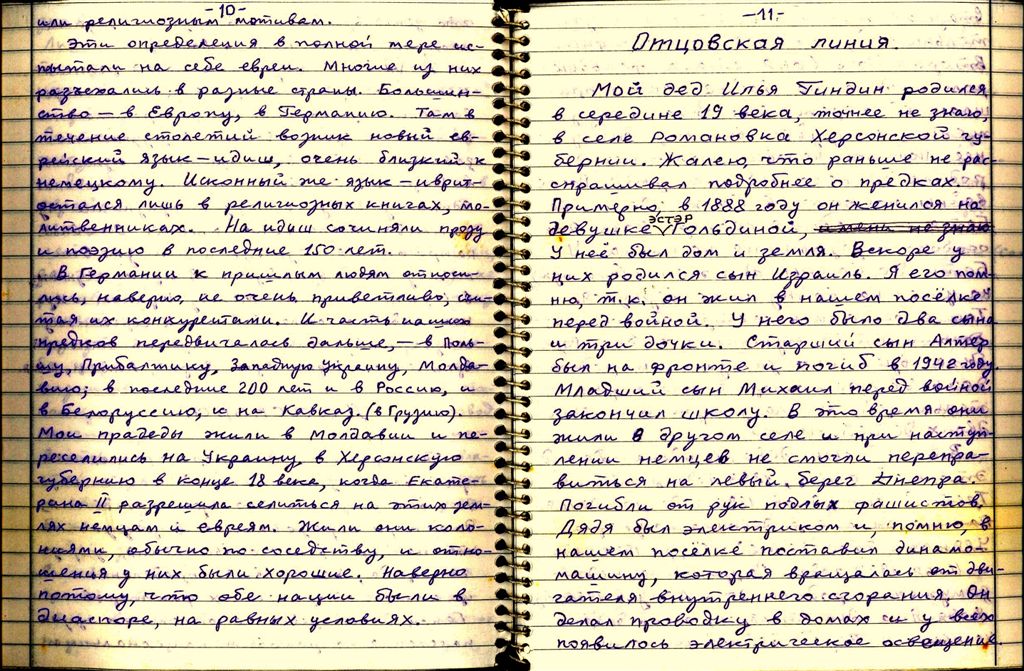 -10-
или религиозным мотивам.
Эти определения в полной мере ис-
пытали на себе евреи. Многие из них
разъехались в разные страны. Большин-
ство — в Европу, в Германию. Там в
течение столетий возник новый ев-
рейский язык — идиш, очень близкий к
немецкому. Исконный же язык — иврит-
остался лишь в религиозных книгах, мо-
литвенниках. На идиш сочиняли прозу
и поэзию в последние 150 лет.
В Германии к пришлым людям относи-
лись, наверно, не очень приветливо, счи-
тая их конкурентами. И часть наших
предков передвигалась дальше, — в Поль-
шу, Прибалтику, Западную Украину, Молда-
вию; в последние 200 лет и в Россию, и
в Белоруссию, и на Кавказ. (в Грузию).
Мои прадеды жили в Молдавии и пе-
реселились на Украину, в Херсонскую
губернию в конце 18 века, когда Екате-
рина II разрешила селиться на этих зем-
лях немцам и евреям. Жили они коло-
ниями, обычно по соседству, и отно-
шения у них были хорошие. Наверно
потому, что обе нации были в
диаспоре, на равных условиях.
-11-
Отцовская линия.
Мой дед Илья Гиндин родился
в середине 19 века, точнее не знаю,
в селе Романовка Херсонской гу-
бернии. Жалею, что раньше не рас-
спрашивал подробнее о предках.
Примерно, в 1888 году он женился на
девушке ЭСТЭР Гольдиной, имени не знаю
У неё был дом и земля. Вскоре у
них родился сын Израиль. Я его пом-
ню, т.к. он жил в нашем посёлке
перед войной. У него было два сына
и три дочки. Старший сын Алтер
был на фронте и погиб в 1942 году.
Младший сын Михаил перед войной
закончил школу. В это время они
жили в другом селе и при наступ-
лении немцев не смогли перепра-
виться на левый берег Днепра.
Погибли от рук подлых фашистов.
Дядя был электриком и, помню, в
нашем посёлке поставил динамо-
машину, которая вращалась от дви-
гателя внутреннего сгорания. Он
делал проводку в домах и у всех
появилось электрическое освещение.